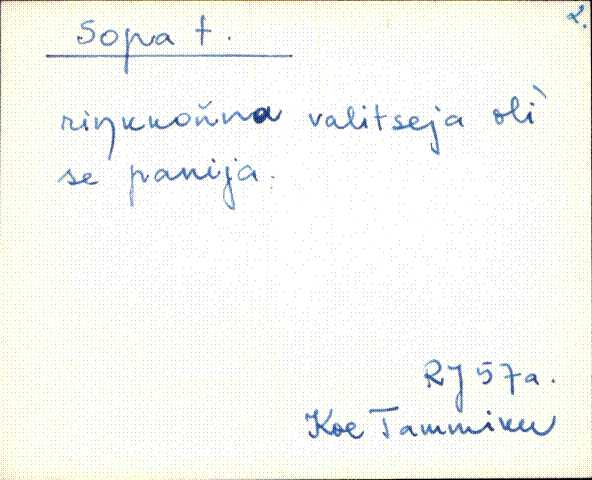 2.
Sopa t.
riŋkkoňna valitseja oli
se panija.
RJ 57a.
Koe Tammiku